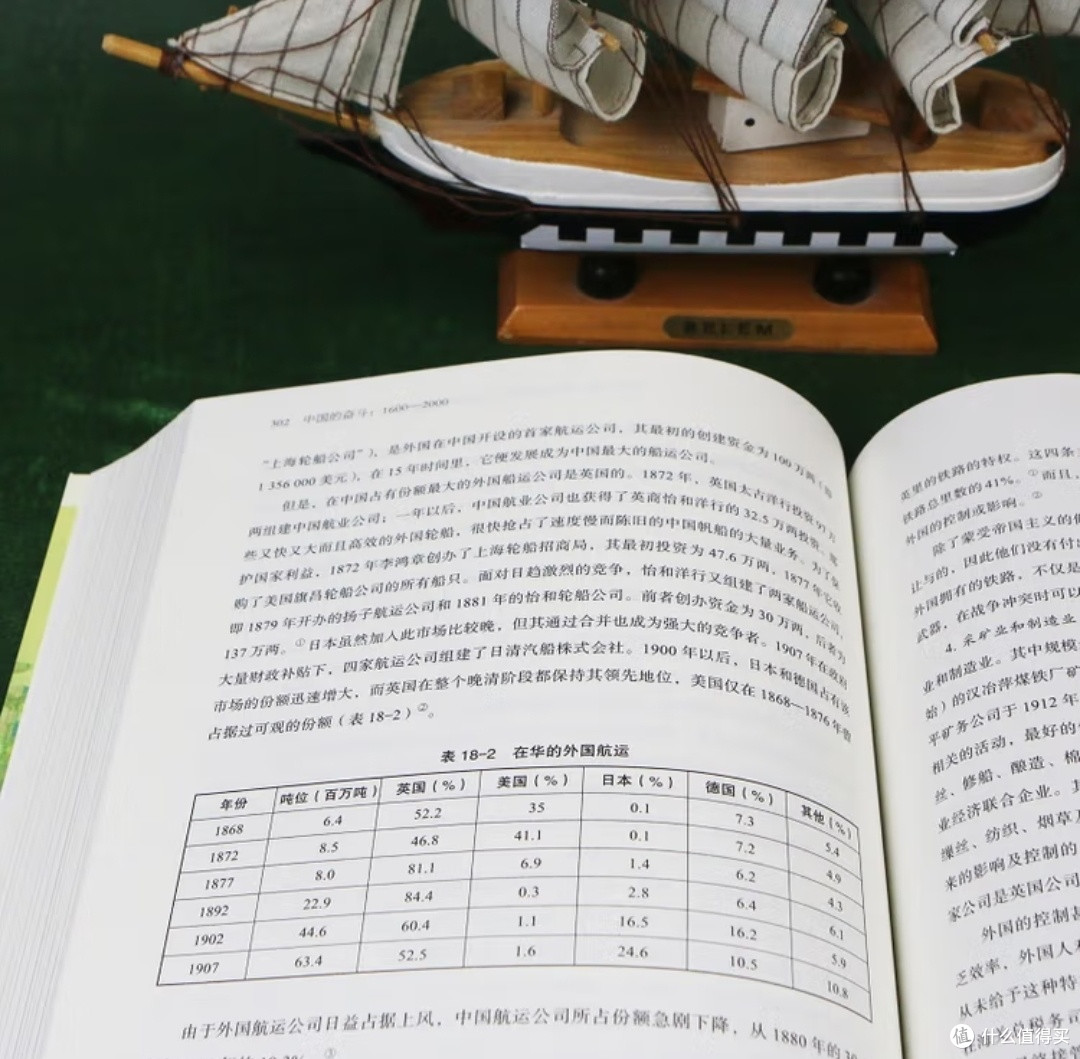 BELEM
302 中国的奋斗：1600—2000
“上海轮船公司”)，是外国在中国开设的首家航运公司，其最初的创建资金为 100 万两（即
1 356 000 美元)，在 15 年时间里，它便发展成为中国最大的船运公司。
但是，在中国占有份额最大的外国船运公司是英国的。1872 年，英国太古洋行投资 97 万
两组建中国航业公司；一年以后，中国航业公司也获得了英商怡和洋行的 32.5 万两投资。那
些又快又大而且高效的外国轮船，很快抢占了速度慢而陈旧的中国帆船的大量业务。为了保
护国家利益，1872 年李鸿章创办了上海轮船招商局，其最初投资为 47.6 万两，1877 年它收
购了美国旗昌轮船公司的所有船只。面对日趋激烈的竞争，怡和洋行又组建了两家船运公司，
即 1879 年开办的扬子航运公司和 1881 年的怡和轮船公司。前者创办资金为 30 万两，后者为
137 万两。①日本虽然加入此市场比较晚，但其通过合并也成为强大的竞争者。1907 年在政府
大量财政补贴下，四家航运公司组建了日清汽船株式会社。1900 年以后，日本和德国占有该
市场的份额迅速增大，而英国在整个晚清阶段都保持其领先地位，美国仅在 1868—1876 年曾
占据过可观的份额（表 18-2）②。
表 18-2 在华的外国航运
年份 吨位（百万吨） 英国（%） 美国（%） 日本（%） 德国（%） 其他（%）
1868 6.4 52.2 35 0.1 7.3 5.4
1872 8.5 46.8 41.1 0.1 7.2 4.9
1877 8.0 81.1 6.9 1.4 6.2 4.3
1892 22.9 84.4 0.3 2.8 6.4 6.1
1902 44.6 60.4 1.1 16.5 16.2 5.9
1907 63.4 52.5 1.6 24.6 10.5 10.8
由于外国航运公司日益占据上风，中国航运公司所占份额急剧下降，从 1880 年的 30
英里的铁路的特权。这四条
铁路总里数的 41%。①而且，
外国的控制或影响。②
除了蒙受帝国主义的
让与的，因此他们没有付
外国拥有的铁路，不仅是
武器，在战争冲突时可以
4. 采矿业和制造业
业和制造业。其中规模
始）的汉冶萍煤铁厂矿
平矿务公司于 1912 年
相关的活动，最好的
丝、修船、酿造、棉
业经济联合企业。其
缫丝、纺织、烟草
来的影响及控制的
家公司是英国公司
外国的控制
乏效率，外国人
从未给予这种特
值 什么值得买